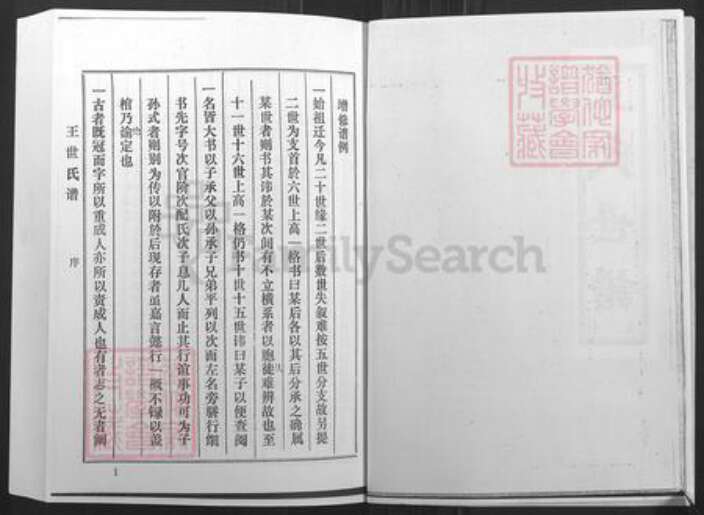 增修谱例
一始祖迁今凡二十世缘二世后数世失叙难按五世分支故另提
二世为支首於六世上高一格书曰某后各以其后分承之确属
某世者则书其讳於某次间有不立横系者以脆徒难辨故也至
十一世十六世上高一格仍书十世十五世讳曰某子以便查阅
一名皆大书以子承父以孙承子兄弟平列以次而左名旁骈行细
书先字号次官阶次配氏次子息几人而止其行谊事功可为子
孙式者则别为传以附於后现存者虽嘉言懿行一概不録以盖
棺乃论定也
一古者既冠而字所以重成人亦所以责成人也有者志之无者阙
王世氏谱
序
1
FamilySearch